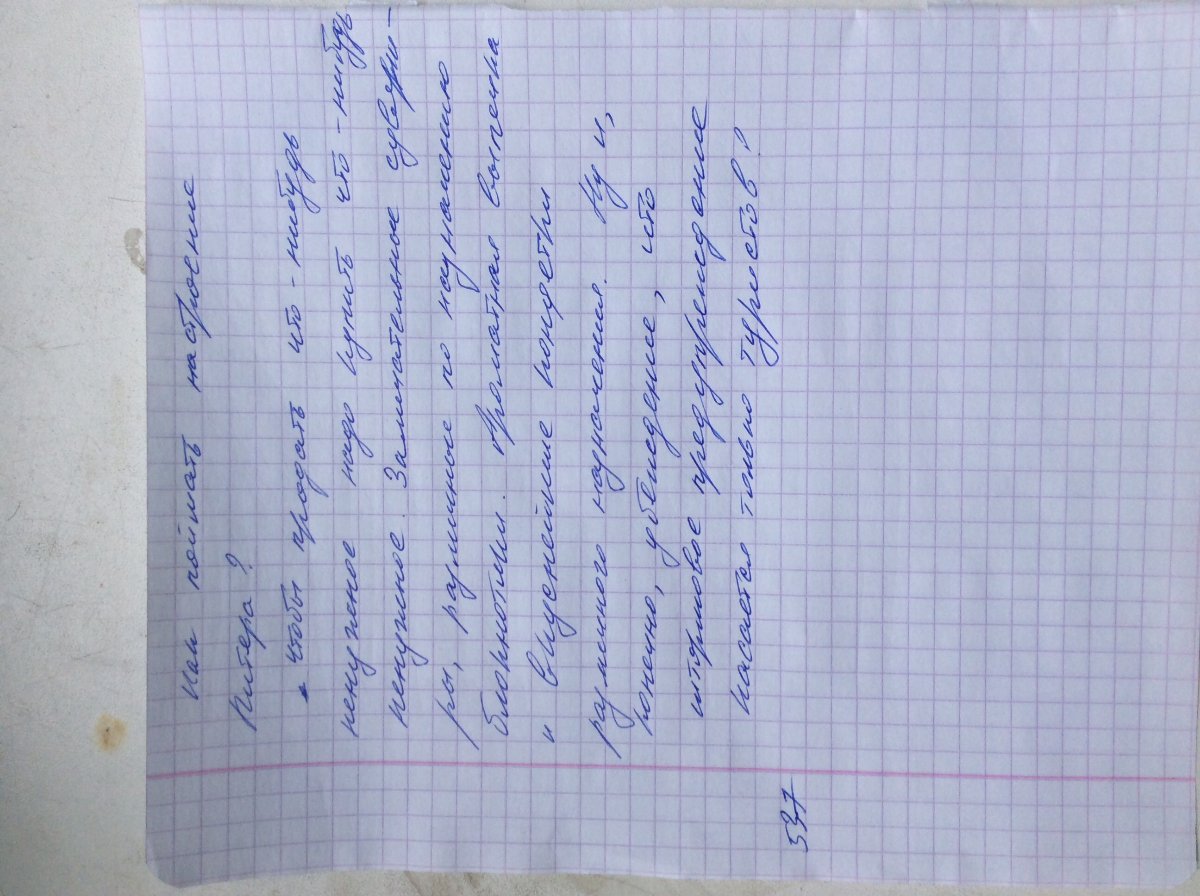 Как поймать настроение
Питера?
• чтобы продать что-нибудь
ненужное надо купить что-нибудь
ненужное. Замечательные сувени-
ры, различные по назначению
блокнотики. Ароматная выпечка
и вкуснейшие конфетки
различного назначения. Ну и,
конечно, убеждение, что
штормовое предупреждение
касается только туристов?
537